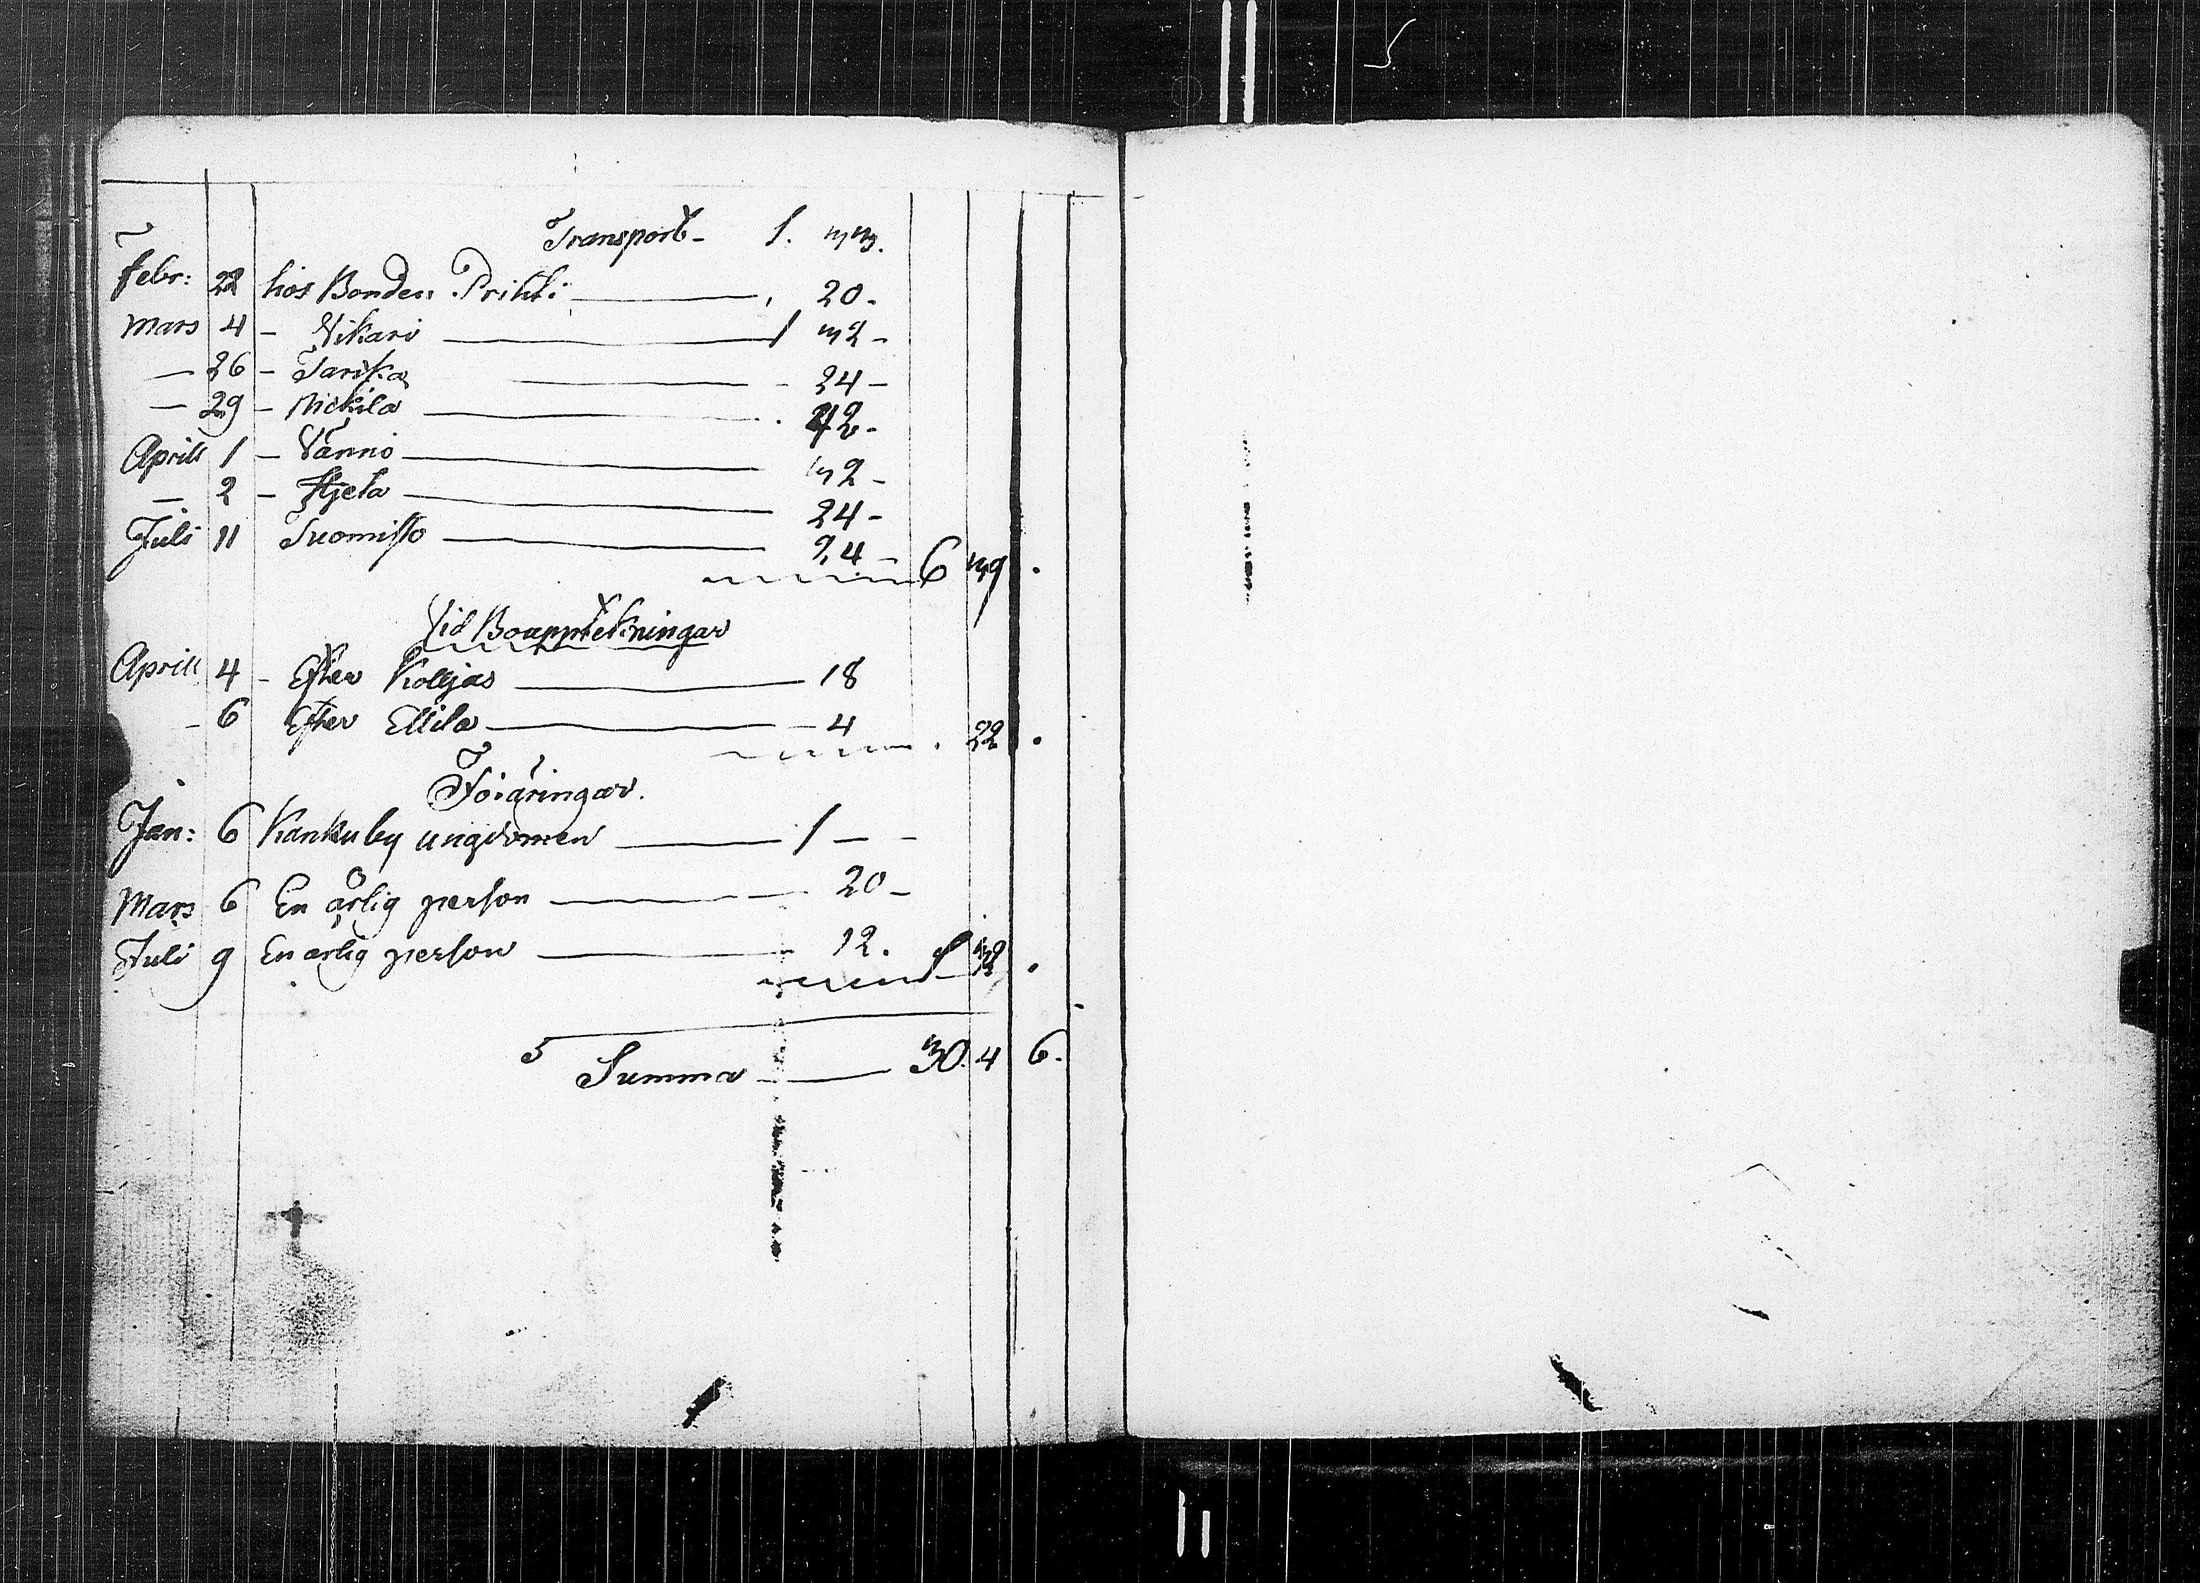 Transport - 1. 33.
Febr: 22 hos Bonden Prihti 20 -
Mars 4 - Vikari 1 32 -
- 26 - Tarika 24 -
- 29 - Nickila 42 -
Aprill 1 - Vännio 32 -
- 2 - Hjeta 24 -
Juli 11 Suomisto 24 - 6 39 .
Vid Boupptekningar
Aprill 4 - Efter Kolljas 18
- 6 Efter Ellila 4 . 22 .
Föräringar.
Jan: 6 Kankuby ungdomen 1 - -
Mars 6 En ärlig person 20 -
Juli 9 En ärlig person 12. 1 32 .
5 Summa 30. 4 6.